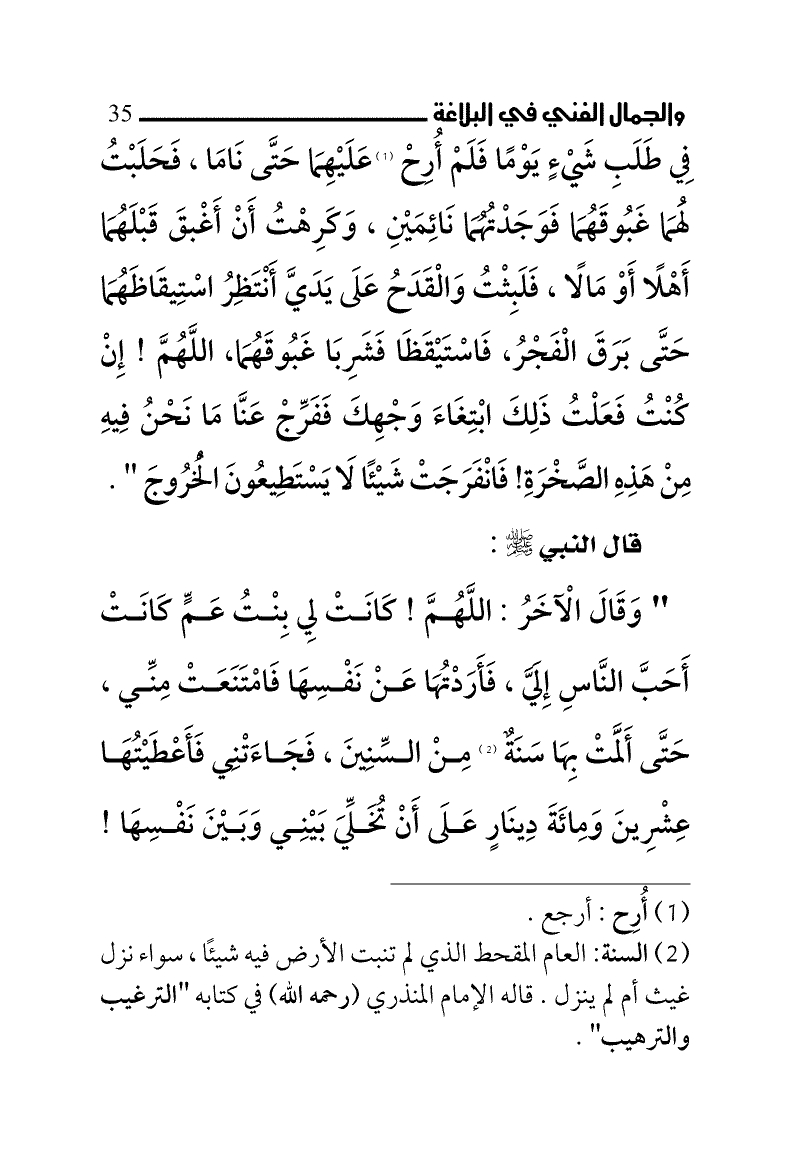 والجمال الفني في البلاغة 35
فِي طَلَبِ شَيْءٍ يَوْمًا فَلَمْ أُرِحْ (1) عَلَيْهِمَا حَتَّى نَامَا ، فَحَلَبْتُ
لَهُمَا غَبُوقَهُمَا فَوَجَدْتُهُمَا نَائِمَيْنِ ، وَكَرِهْتُ أَنْ أَغْبقَ قَبْلَهُمَا
أَهْلًا أَوْ مَالًا ، فَلَبِثْتُ وَالْقَدَحُ عَلَى يَدَيَّ أَنْتَظِرُ اسْتِيقَاظَهُمَا
حَتَّى بَرَقَ الْفَجْرُ، فَاسْتَيْقَظَا فَشَرِبَا غَبُوقَهُمَا، اللَّهُمَّ ! إِنْ
كُنْتُ فَعَلْتُ ذَلِكَ ابْتِغَاءَ وَجْهِكَ فَفَرِّجْ عَنَّا مَا نَحْنُ فِيهِ
مِنْ هَذِهِ الصَّخْرَةِ! فَانْفَرَجَتْ شَيْئًا لَا يَسْتَطِيعُونَ الْخُرُوجَ " .
قال النبي ﷺ :
" وَقَالَ الْآخَرُ : اللَّهُمَّ ! كَانَتْ لِي بِنْتُ عَمٍّ كَانَتْ
أَحَبَّ النَّاسِ إِلَيَّ ، فَأَرَدْتُهَا عَنْ نَفْسِهَا فَامْتَنَعَتْ مِنِّي ،
حَتَّى أَلَمَّتْ بِهَا سَنَةٌ (2) مِنْ السِّنِينَ ، فَجَاءَتْنِي فَأَعْطَيْتُهَا
عِشْرِينَ وَمِائَةَ دِينَارٍ عَلَى أَنْ تُخَلِّيَ بَيْنِي وَبَيْنَ نَفْسِهَا !
(1) أُرِح : أرجع .
(2) السنة: العام المقحط الذي لم تنبت الأرض فيه شيئًا ، سواء نزل
غيث أم لم ينزل . قاله الإمام المنذري (رحمه الله) في كتابه "الترغيب
والترهيب" .